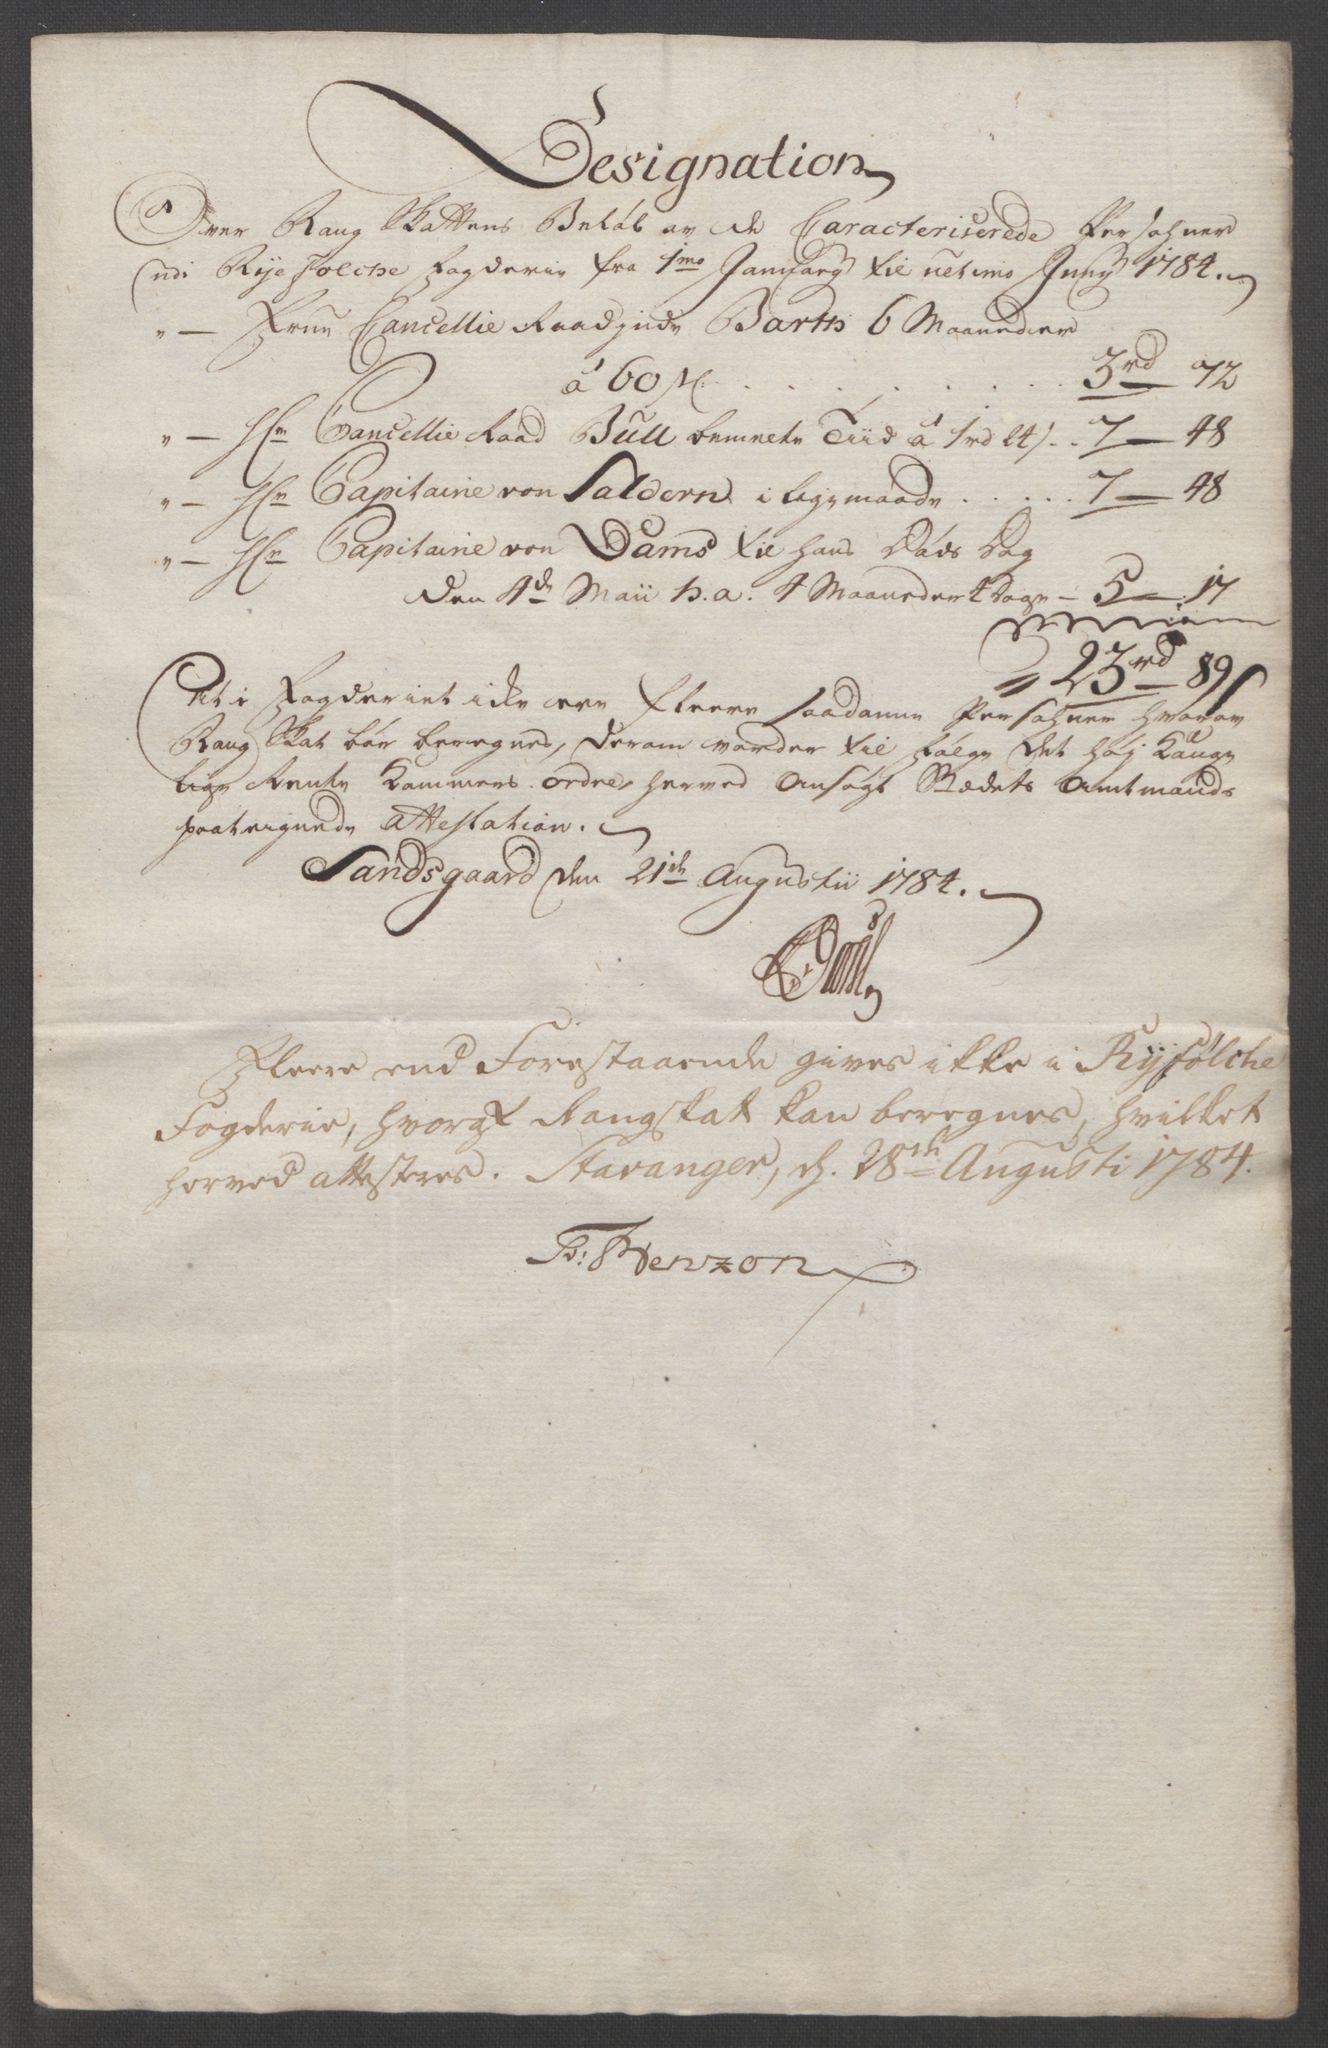 Designation
Over Rang Skattens Beløb av de Caracteriserede Persohner
udi Rÿe folche fogderie fra 1mo Januarÿ til ultimo Junÿ 1784.
"— Frue Cancellie Raadinde Barth 6 Maaneder
á 60 s. . . . . . . . . . . 3rd 72
"— Hr Cancellie Raad Bull bemelte Tiid á 1rd 24 s. . 7 — 48
"— Hr Capitaine von Saldern i ligemaade . . . . . 7 — 48
"— Hr Capitaine von Dams til hans Døds Dag
den 4de Maii h.a. 4 Maaneder 4 Dage — 5 — 17
23rd 89 s
At i Fogderiet icke ere fleere saadanne Persohner hvorav
Rang Skat bør beregnes, derom vorder til følge det høj Konge
lige Rente Kammers ordre, herved Ansøgt Stædets Amtmands
paateignede Attestation.
Sandsgaard den 21de Augustii 1784.
Fleere end Forestaaende gives ikke i Ryfølche
Fogderie, hvoraf Rangskat kan beregnes, hvilket
herved attesteres. Stavanger, d. 28de Augusti 1784.
Benzon